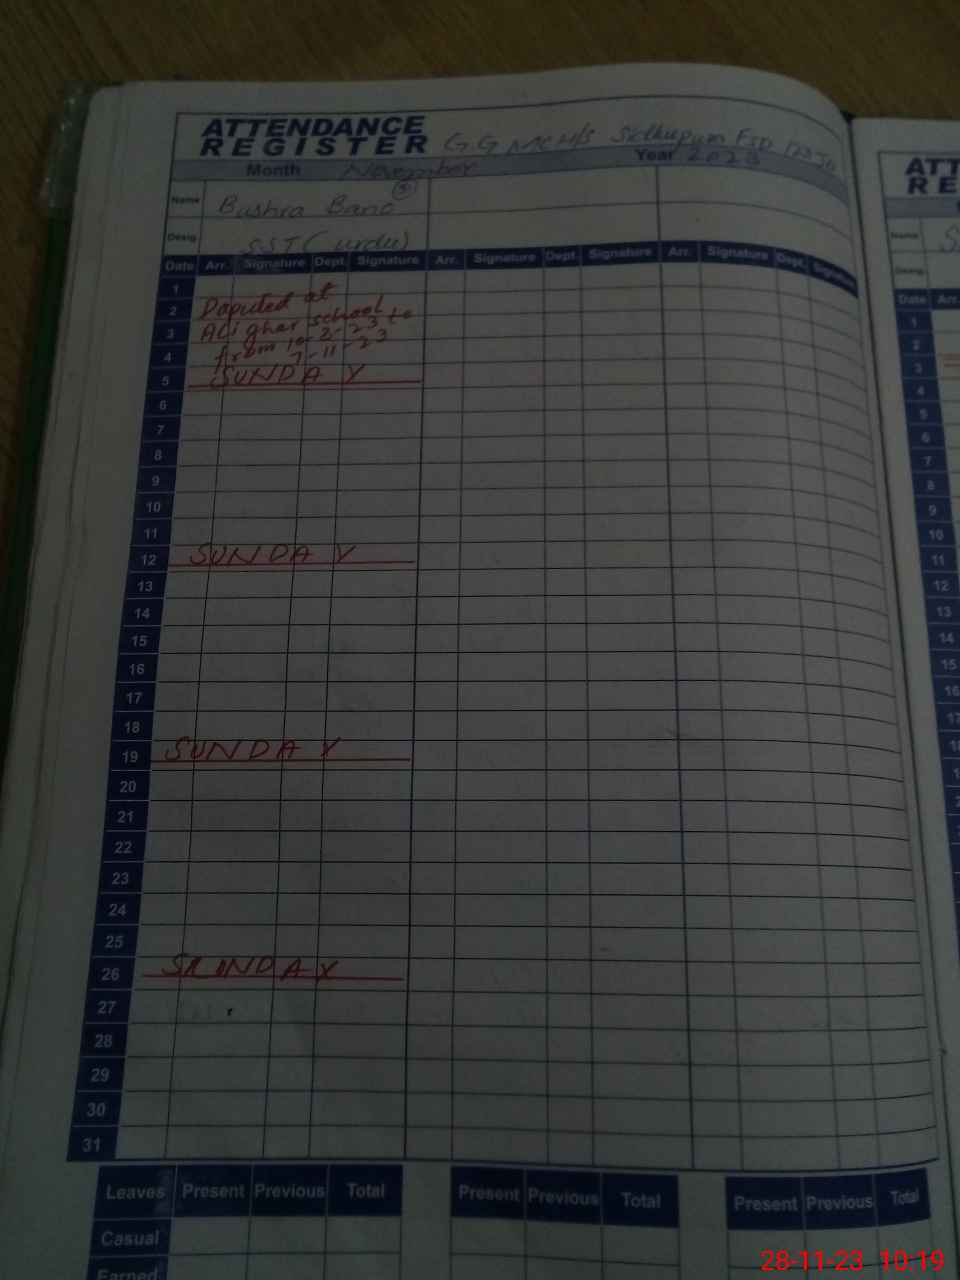 ATTENDANCE
REGISTER G.G MCH/S Sidhupura FSD
Month November Year 2023
Name Bushra Bano 5
Desig. SST (urdu)
Date Arr. Signature Dept. Signature Arr. Signature Dept. Signature Arr. Signature Dept. Signature
1
2 Daputed at
3 Ali ghar school
4 from 10-2-23 to
7-11-23
5 SUNDAY
6
7
8
9
10
11
12 SUNDAY
13
14
15
16
17
18
19 SUNDAY
20
21
22
23
24
25
26 SUNDAY
27
28
29
30
31
Leaves Present Previous Total Present Previous Total Present Previous Total
Casual
Earned
ATT
RE
Name S
Desig.
Date Arr.
1
2
3
4
5
6
7
8
9
10
11
12
13
14
15
16
17
28-11-23 10:19